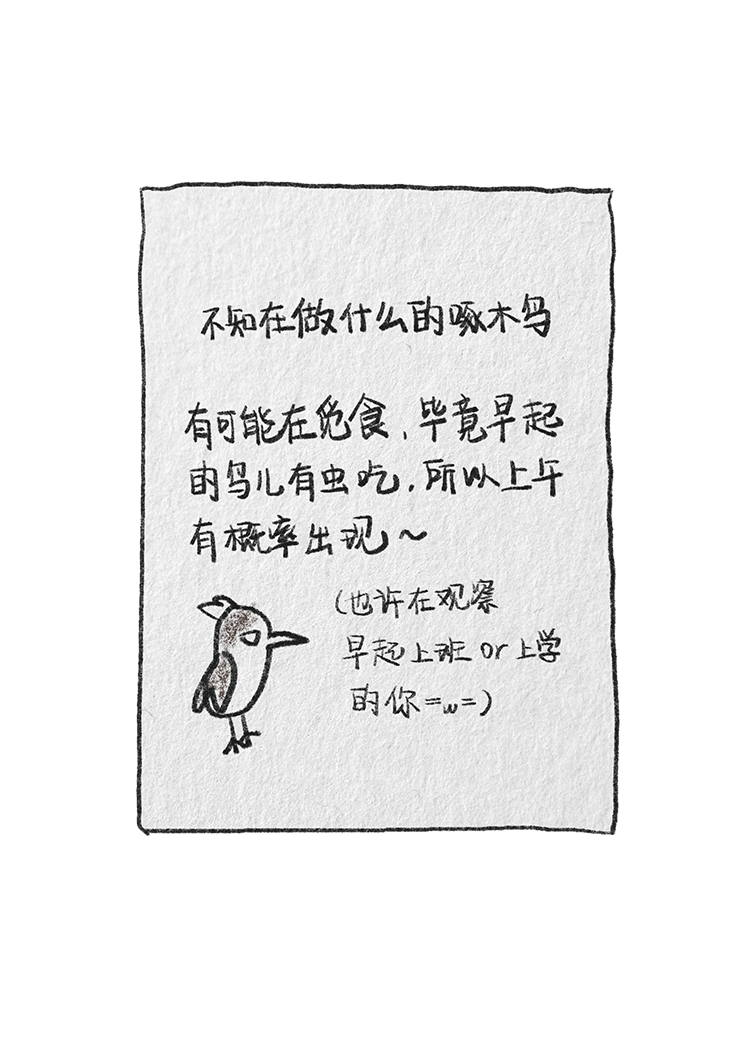 不知在做什么的啄木鸟
有可能在觅食，毕竟早起
的鸟儿有虫吃，所以上午
有概率出现～
（也许在观察
早起上班or上学
的你=w=）